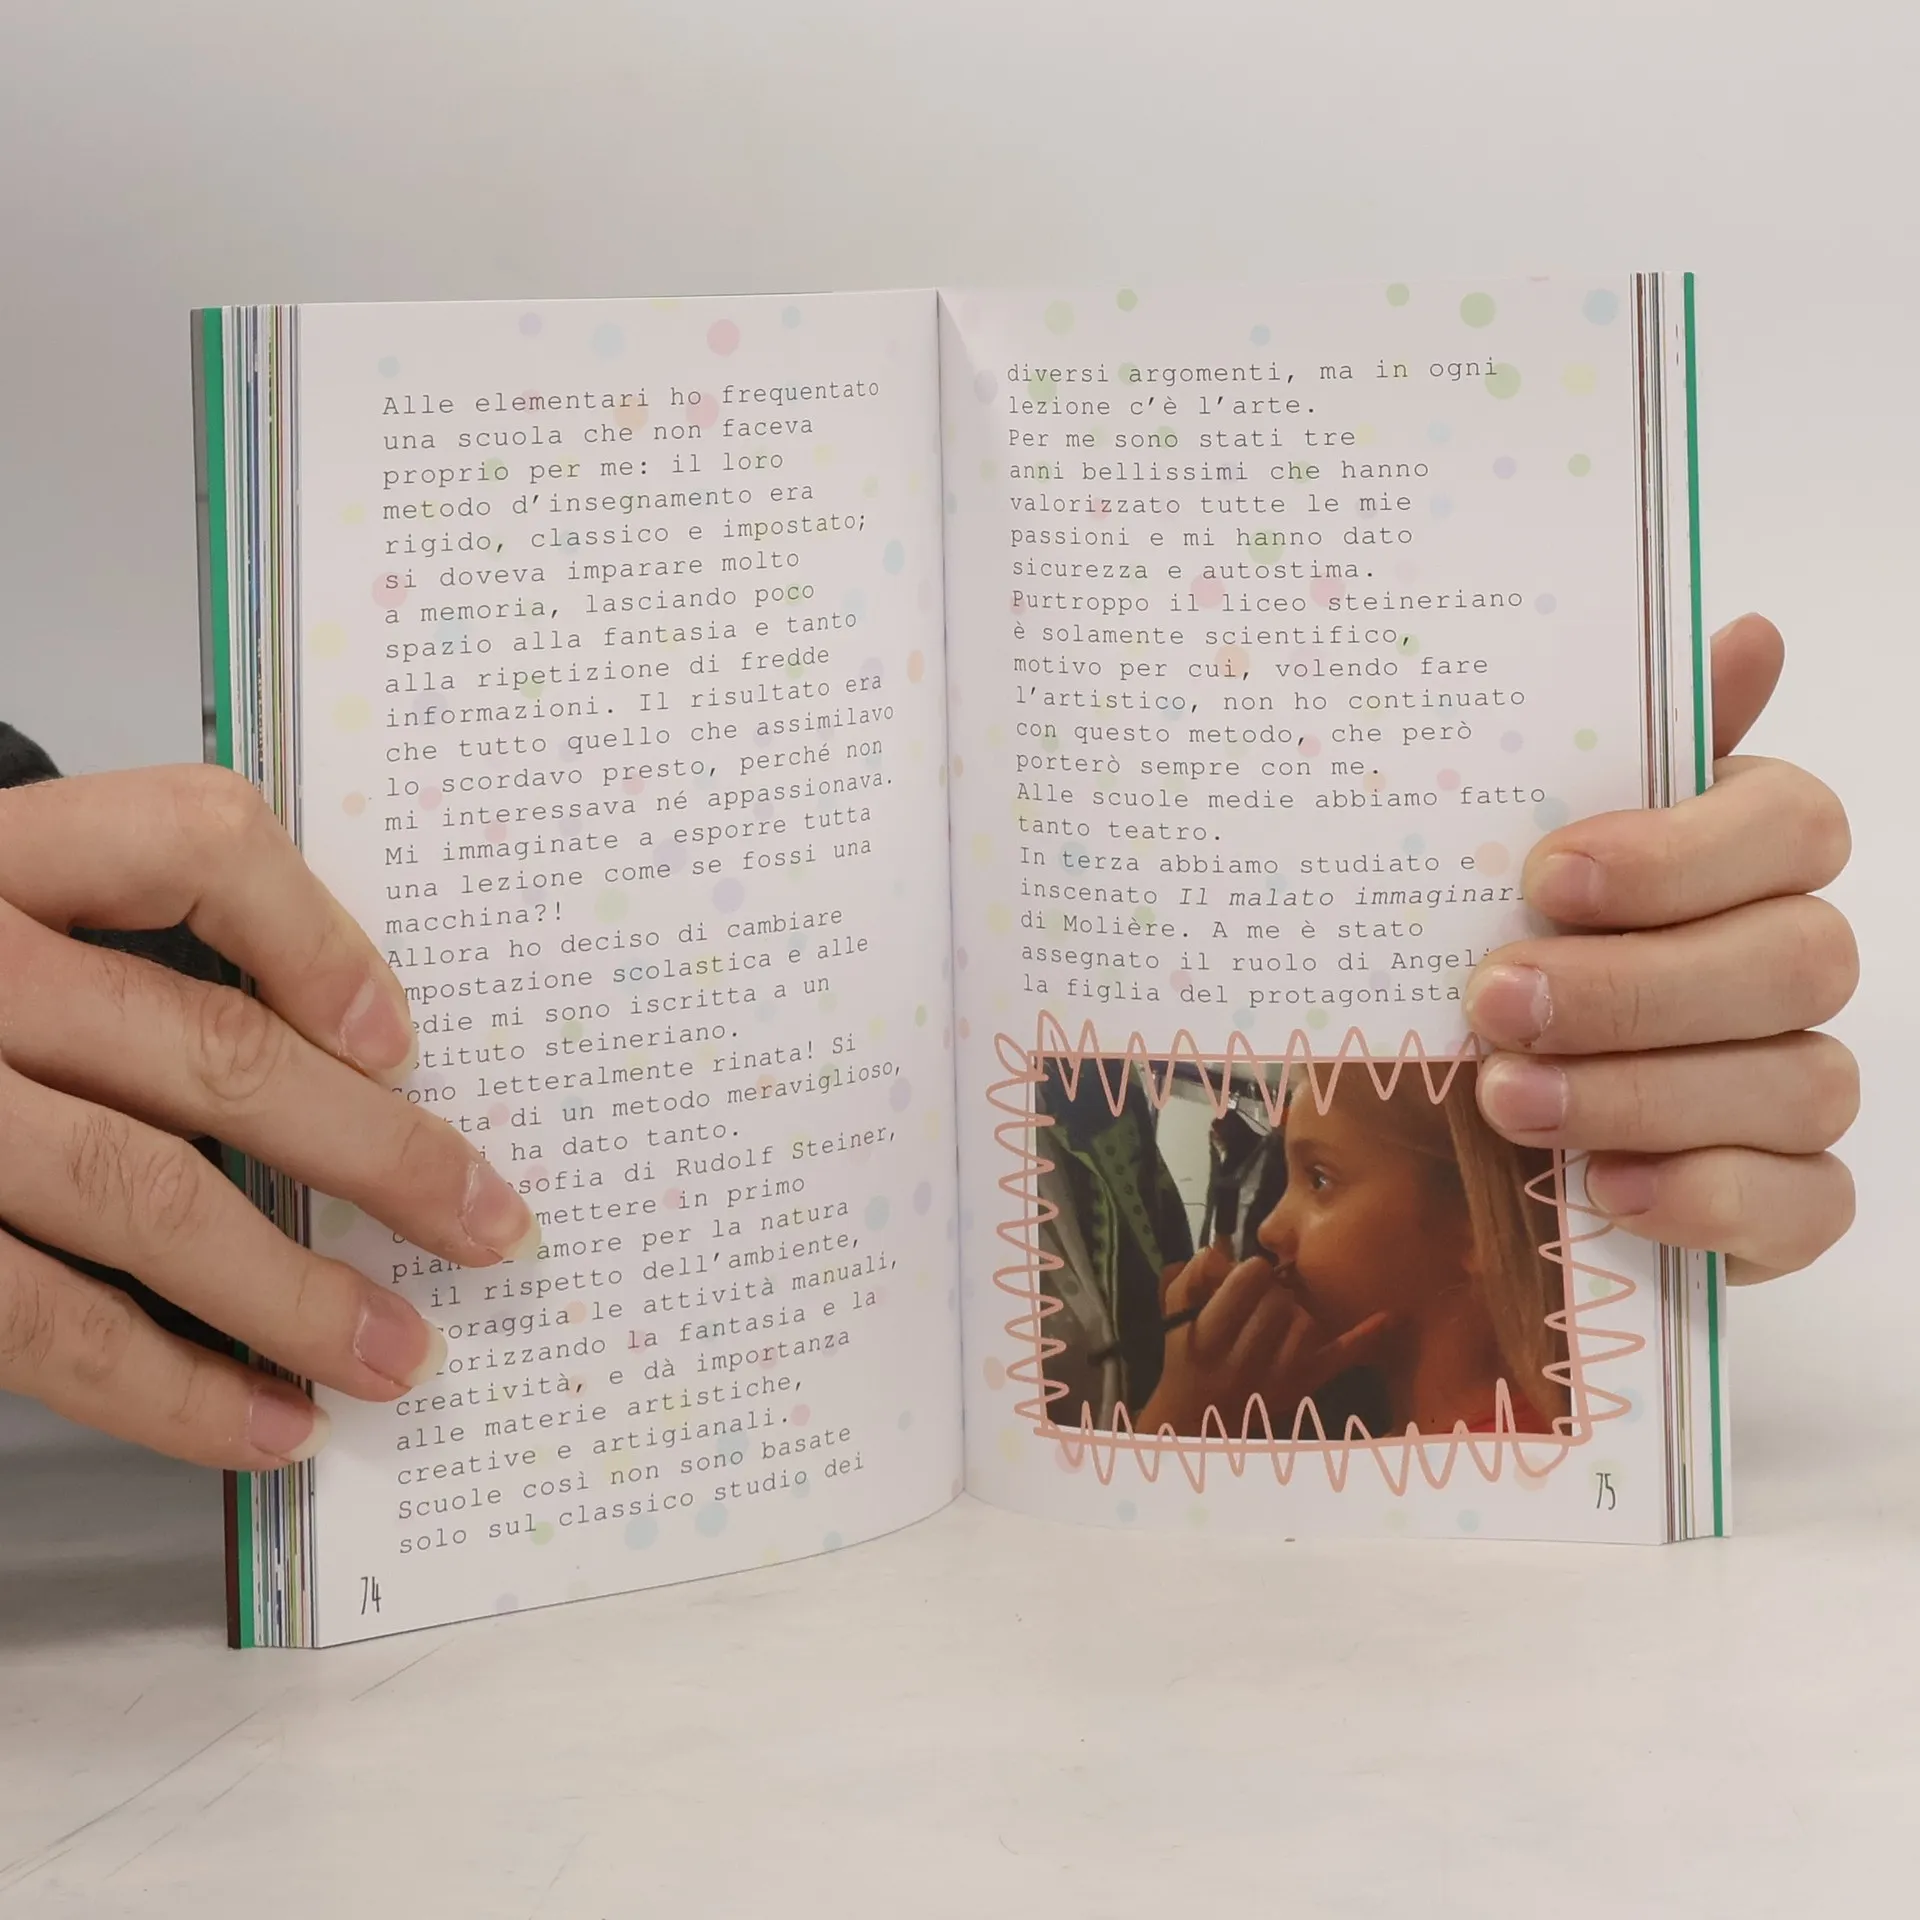 Alle elementari ho frequentato
una scuola che non faceva
proprio per me: il loro
metodo d'insegnamento era
rigido, classico e impostato;
si doveva imparare molto
a memoria, lasciando poco
spazio alla fantasia e tanto
alla ripetizione di fredde
informazioni. Il risultato era
che tutto quello che assimilavo
lo scordavo presto, perché non
mi interessava né appassionava.
Mi immaginate a esporre tutta
una lezione come se fossi una
macchina?!
Allora ho deciso di cambiare
mpostazione scolastica e alle
edie mi sono iscritta a un
stituto steineriano.
ono letteralmente rinata! Si
tta di un metodo meraviglioso,
i ha dato tanto.
sofia di Rudolf Steiner,
mettere in primo
amore per la natura
il rispetto dell'ambiente,
oraggia le attività manuali,
orizzando la fantasia e la
creatività, e dà importanza
alle materie artistiche,
creative e artigianali.
Scuole così non sono basate
solo sul classico studio dei
74
diversi argomenti, ma in ogni
lezione c'è l'arte.
Per me sono stati tre
anni bellissimi che hanno
valorizzato tutte le mie
passioni e mi hanno dato
sicurezza e autostima.
Purtroppo il liceo steineriano
è solamente scientifico,
motivo per cui, volendo fare
l'artistico, non ho continuato
con questo metodo, che però
porterò sempre con me.
Alle scuole medie abbiamo fatto
tanto teatro.
In terza abbiamo studiato e
inscenato Il malato immaginar
di Molière. A me è stato
assegnato il ruolo di Angel
la figlia del protagonista
75